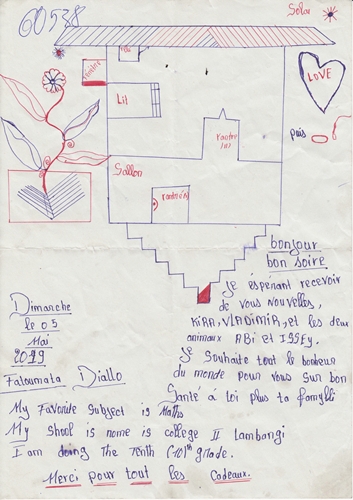 60538
Solar
LOVE
Lit
Sallon
puis
bonjour
bon soire
Je espérant recevoir
de vous nouvelles,
KIRA, VLADIMIR, et les deux
animaux ABi et ISSEY.
Je Souhaite tout le bonheur
du monde pour vous Sur bon
Santé à toi plus ta famylli
Dimanche
le 05
Mai
2019
Fatoumata Diallo
My Favorite Subject is Maths
My Shool is name is college II Lambangi
I am doing the Tenth (10th grade.
Merci pour tout les Cadeaux.